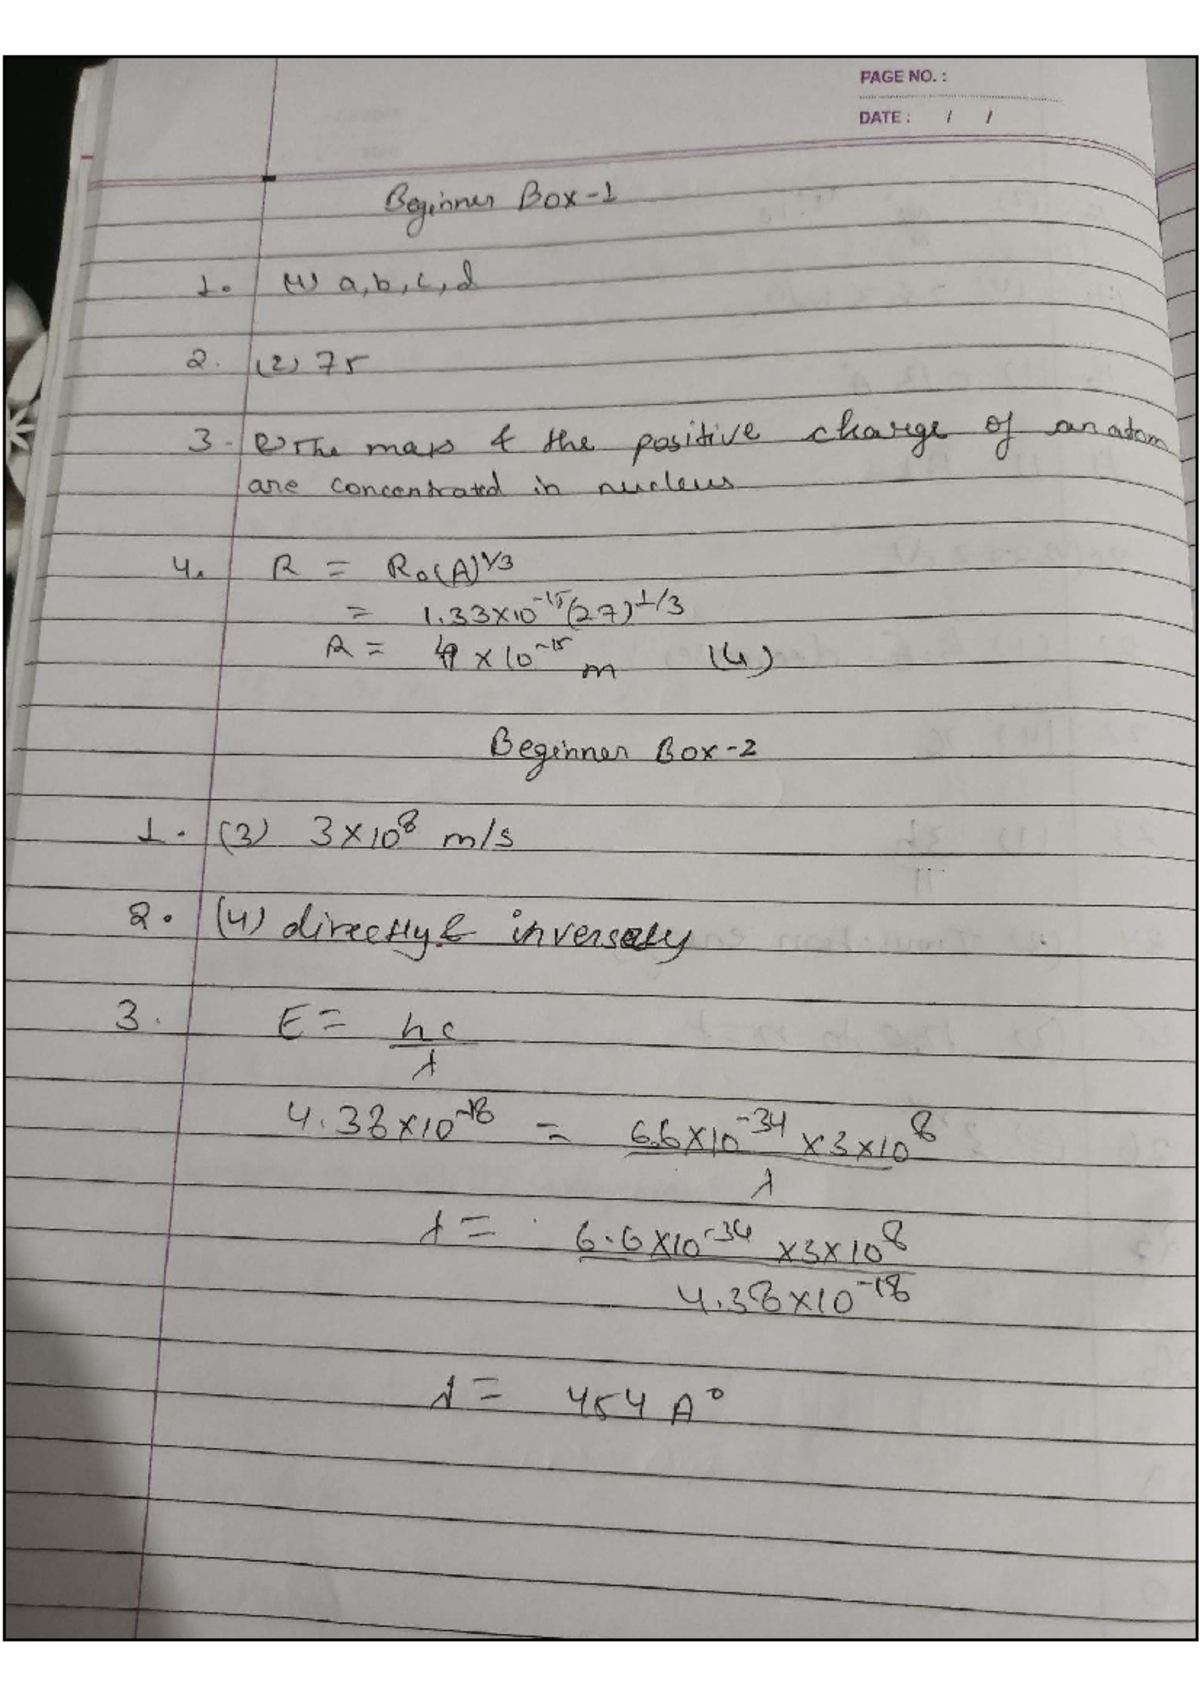 PAGE NO. :
DATE : / /
Beginner Box-1
1. (4) a, b, c, d
2. (2) 75
3. The mass & the positive charge of an atom
are concentrated in nucleus
4. R = R₀(A)^1/3
= 1.33×10^-15(27)^1/3
R = 4 × 10^-15 m (4)
Beginner Box-2
1. (3) 3×10^8 m/s
2. (4) directly & inversely
3. E = hc/λ
4.38×10^-18 = 6.6×10^-34 ×3×10^8/λ
λ = 6.6×10^-34 ×3×10^8/4.38×10^-18
λ = 454 A°